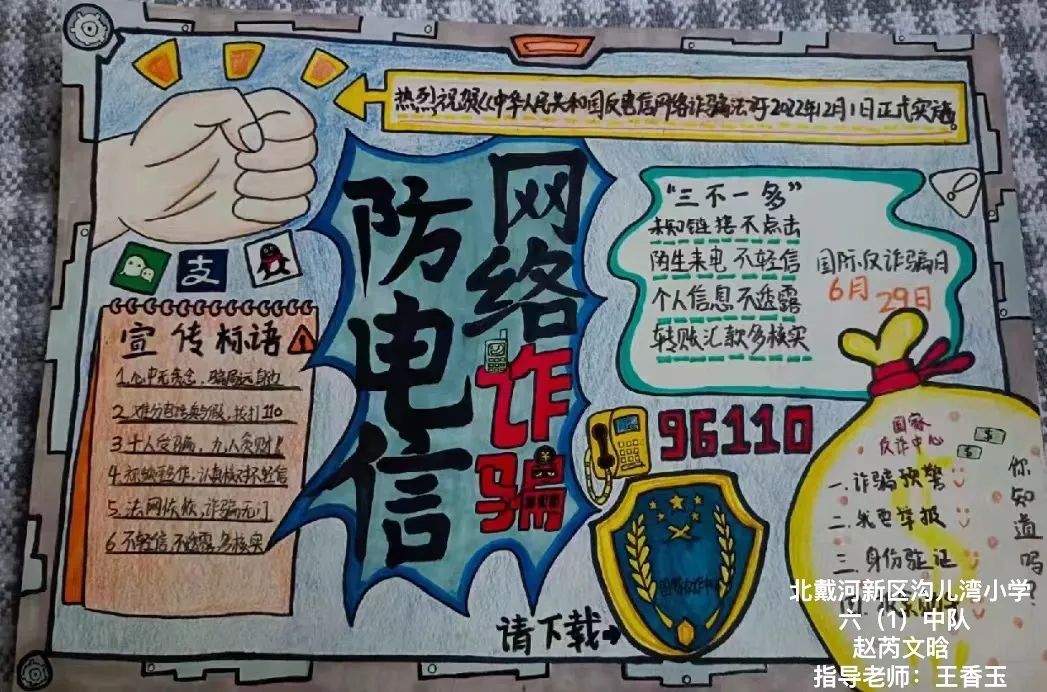 热烈祝贺《中华人民共和国反电信网络诈骗法》于2022年12月1日正式实施。
防电信
网络诈骗
支
宣传标语
1.心中无贪念，骗局远身边
2.难分真接真与假，拨打110
3.十人受骗，九人贪财！
5.法网恢恢，诈骗无门
6.不轻信 不透露 多核实
“三不一多”
未知链接不点击
陌生来电 不轻信
个人信息 不透露
转账汇款多核实
国际反诈骗日
6月29日
96110
国家反诈中心
请下载
国家
反诈中心
你知道吗?
一.诈骗预警
二.我要举报
三.身份验证
北戴河新区沟儿湾小学
六（1）中队
赵芮文晗
指导老师：王香玉